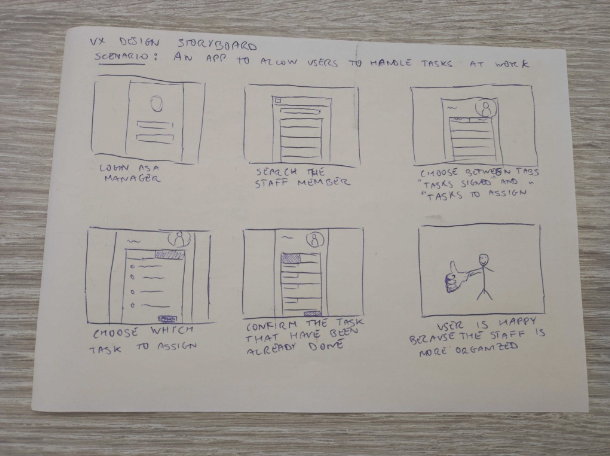 UX DESIGN STORYBOARD
SCENARIO: AN APP TO ALLOW USERS TO HANDLE TASKS AT WORK
LOGIN AS A
MANAGER
SEARCH THE
STAFF MEMBER
CHOOSE BETWEEN TASS
"TASKS SIGNED AND "
"TASKS TO ASSIGN
CHOOSE WHICH
TASK TO ASSIGN
CONFIRM THE TASK
THAT HAVE BEEN
ALREADY DONE
USER IS HAPPY
BECAUSE THE STAFF IS
MORE ORGANIZED